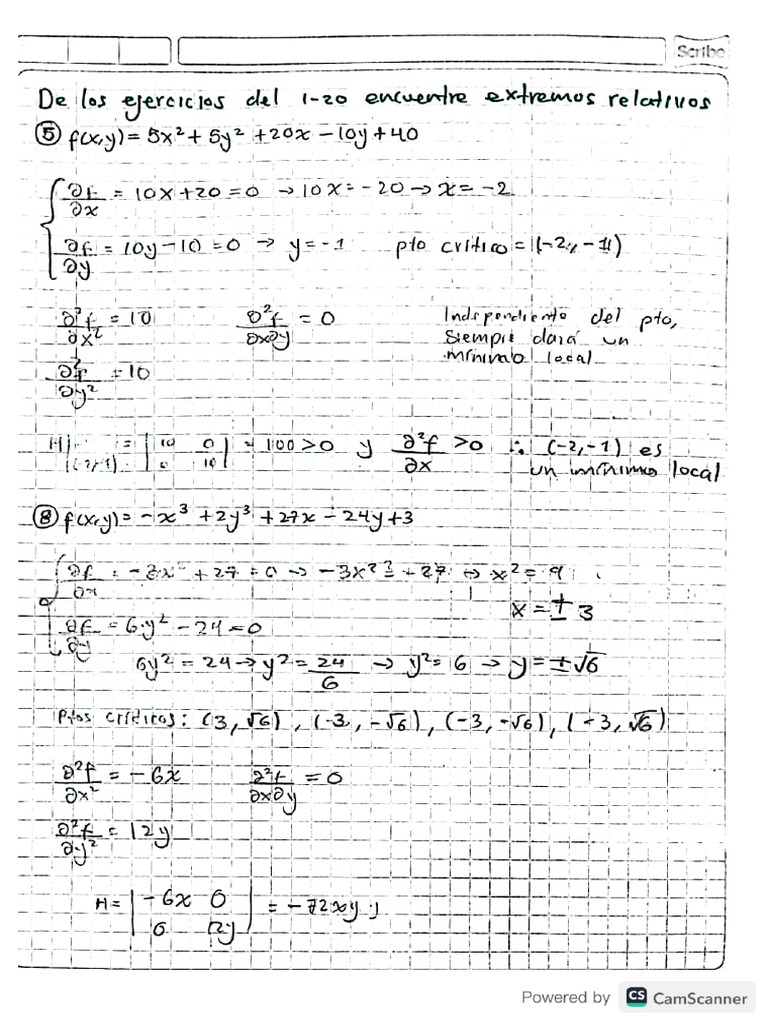 Scribe
De los ejercicios del 1-20 encuentre extremos relativos
⑤ f(x,y)= 5x² + 5y² +20x -10y+40
∂f/∂x = 10x+20=0 → 10x=-20 → x=-2
∂f/∂y = 10y-10=0 → y=-1 pto crítico=(-2,-1)
∂²f/∂x² = 10 ∂²f/∂x∂y = 0 Independiente del pto,
siempre dará un
mínimo local
∂²f/∂y² = 10
H|(-2,-1) = |10 0; 0 10| = 100>0 y ∂²f/∂x >0 ∴ (-2,-1) es
un mínimo local
⑧ f(x,y)= -x³ +2y³ +27x -24y+3
∂f/∂x = -3x² +27=0 → -3x² = +27 → x² = 9
x=± 3
∂f/∂y = 6y² -24=0
6y² = 24 → y² = 24/6 → y² = 6 → y=±√6
Ptos críticos: (3,√6), (-3,-√6), (-3,-√6), (-3,√6)
∂²f/∂x² = -6x ∂²f/∂x∂y = 0
∂²f/∂y² = 12y
H= |-6x 0; 0 12y| = -72xy
Powered by CS CamScanner